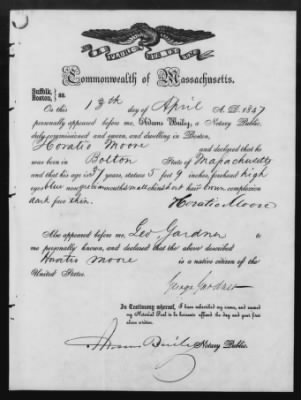 Commonwealth of Massachusetts.
Suffolk,
Boston, } ss.
On this 13th day of April A.D. 1847
personally appeared before me, Adams Baily, a Notary Public,
duly commissioned and sworn, and dwelling in Boston,
Horatio Moore and declared that he
was born in Bolton State of Massachusetts
and that his age is 37 years, stature 5 feet 9 inches, forehead high
eyes blue nose mouth small chin short hair brown complexion
dark face thin.
Horatio Moore
Also appeared before me, Geo. Gardner to
me personally known, and declared that the above described
Horatio Moore is a native citizen of the
United States.
George Gardner
In Testimony whereof, I have subscribed my name, and caused
my Notarial Seal to be hereunto affixed the day and year first
above written.
Adams Baily Notary Public.